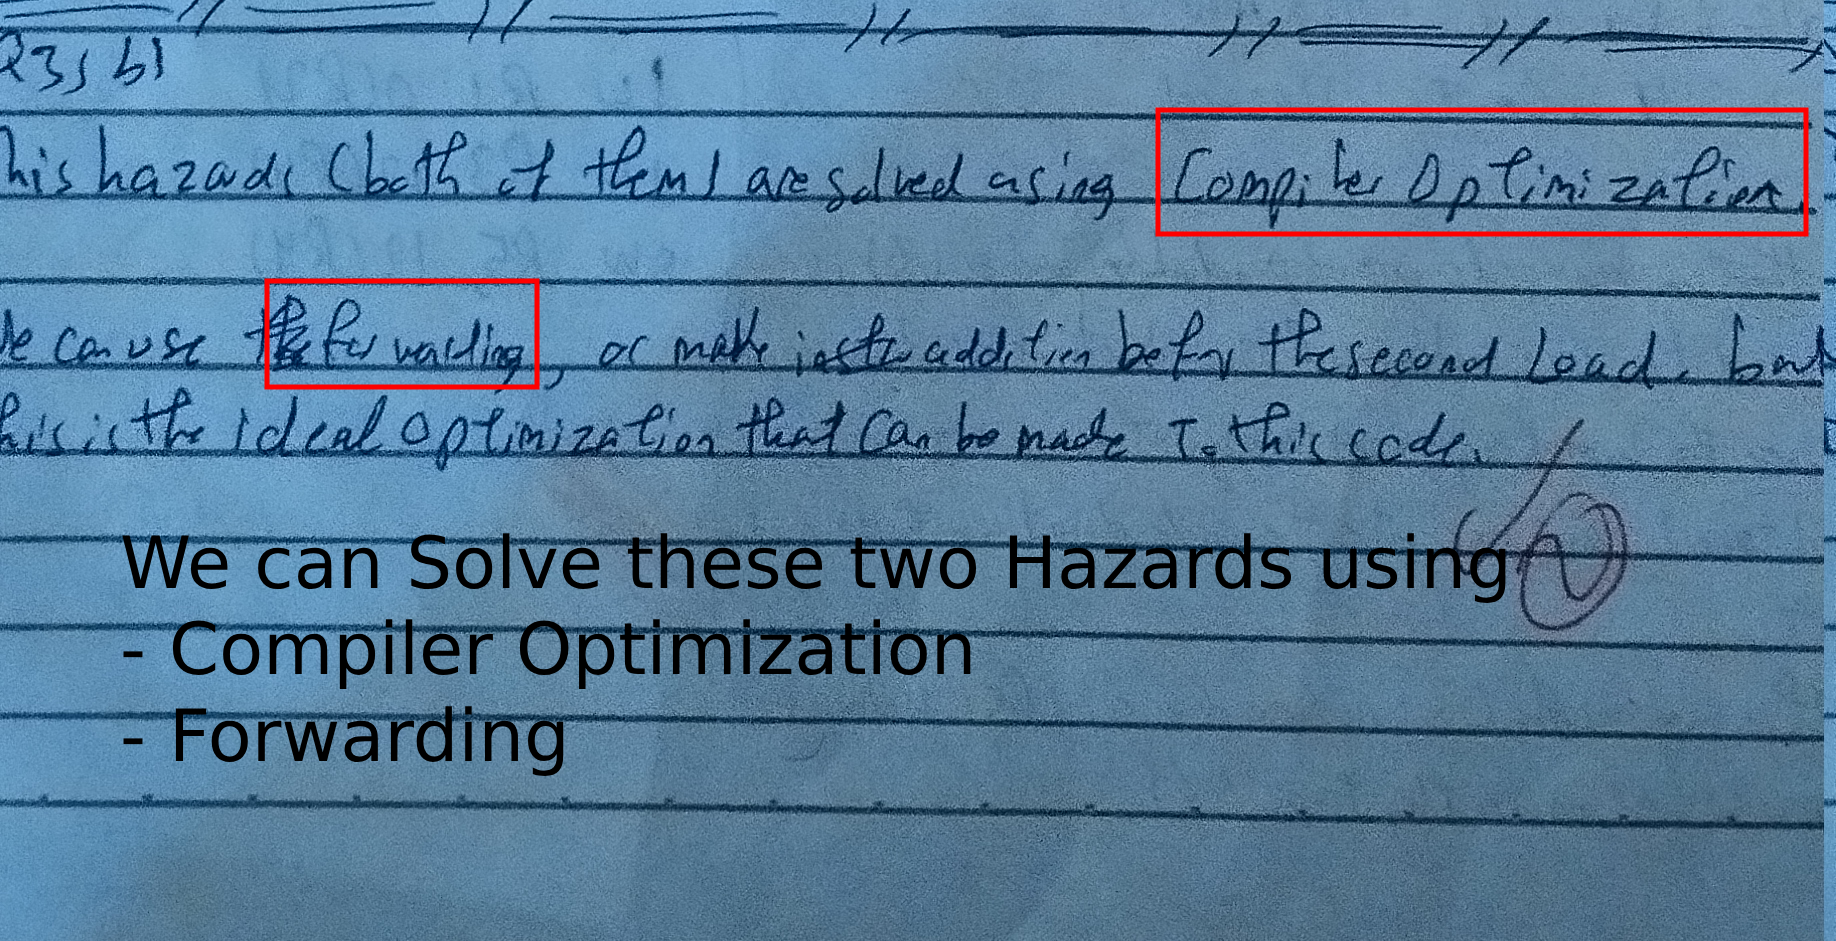 Q3, b)
his hazards (both of them) are solved using Compiler Optimization.
We can use forwarding, or make instr addition before the second Load. but
his is the ideal optimization that can be made To this code.
We can Solve these two Hazards using
- Compiler Optimization
- Forwarding